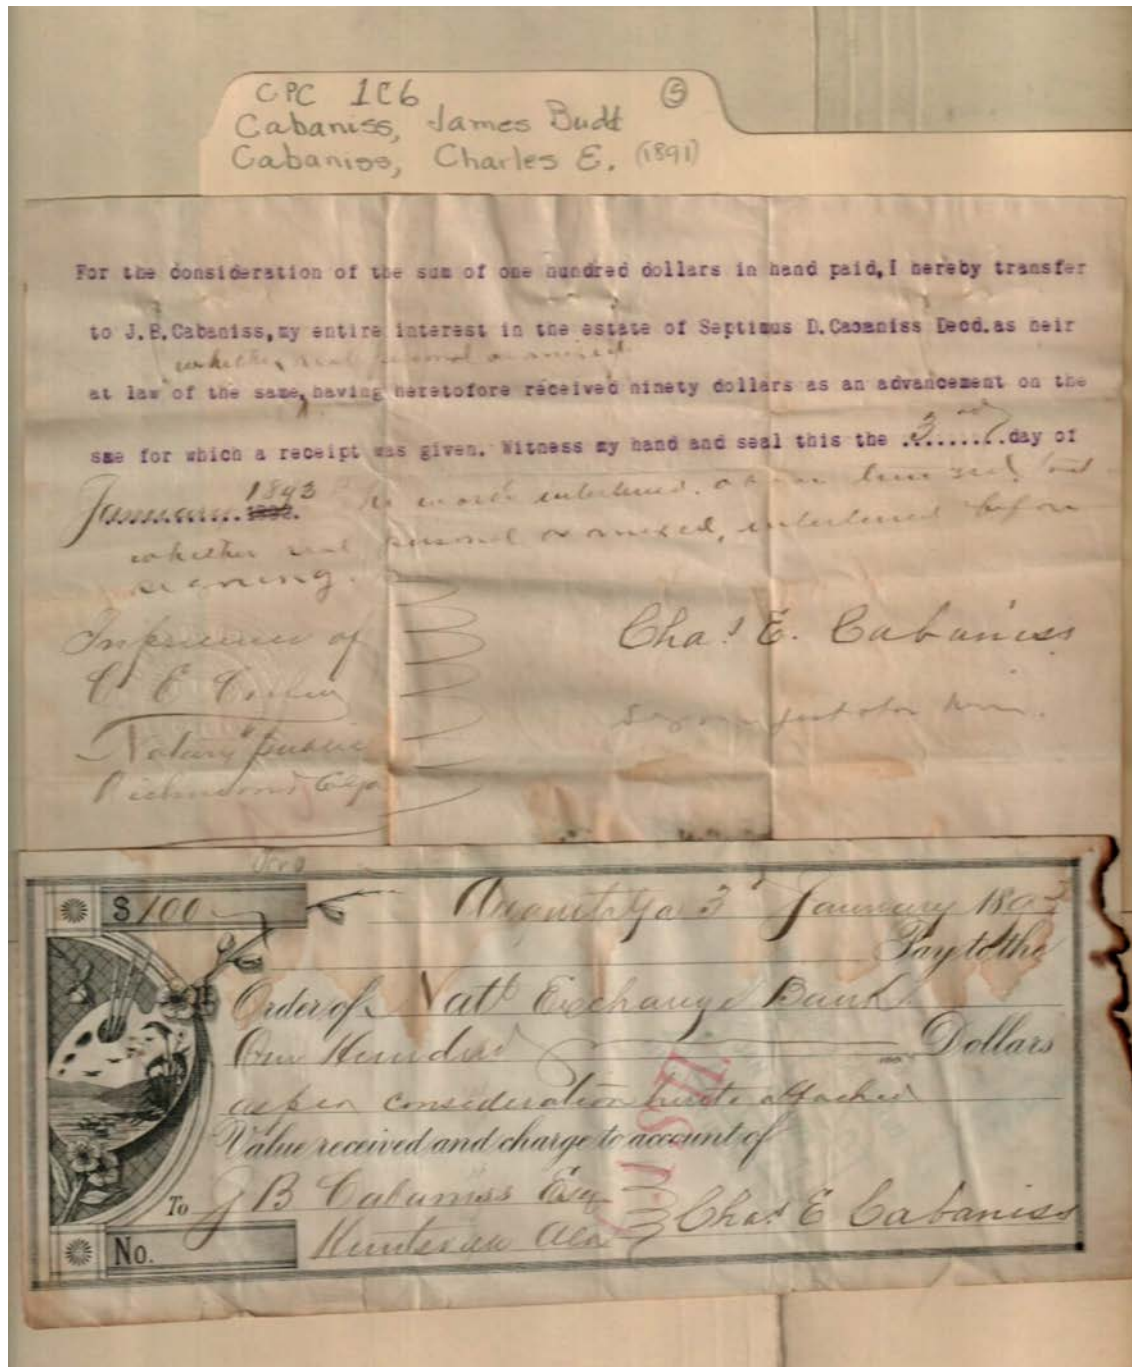 CPC 1C6 ⑤
Cabaniss, James Budd
Cabaniss, Charles E. (1891)
For the consideration of the sum of one hundred dollars in hand paid, I hereby transfer
to J.B.Cabaniss, my entire interest in the estate of Septimus D.Cabaniss Decd.as heir
whether real personal or mixed
at law of the same, having heretofore received ninety dollars as an advancement on the
sme for which a receipt was given. Witness my hand and seal this the 3rd day of
January 1893 1892. interlined.
whether real personal or mixed, interlined before
signing.
In presence of
Chas E. Cabaniss
C E
Notary Public
Richmond Co Ga
$100
Augusta Ga 3d January 1893
Pay to the
Order of Natl Exchange Bank
One Hundred Dollars
as per consideration hereto attached
Value received and charge to account of
To J B Cabaniss Esq
Chas E Cabaniss
Huntsville Ala
No.